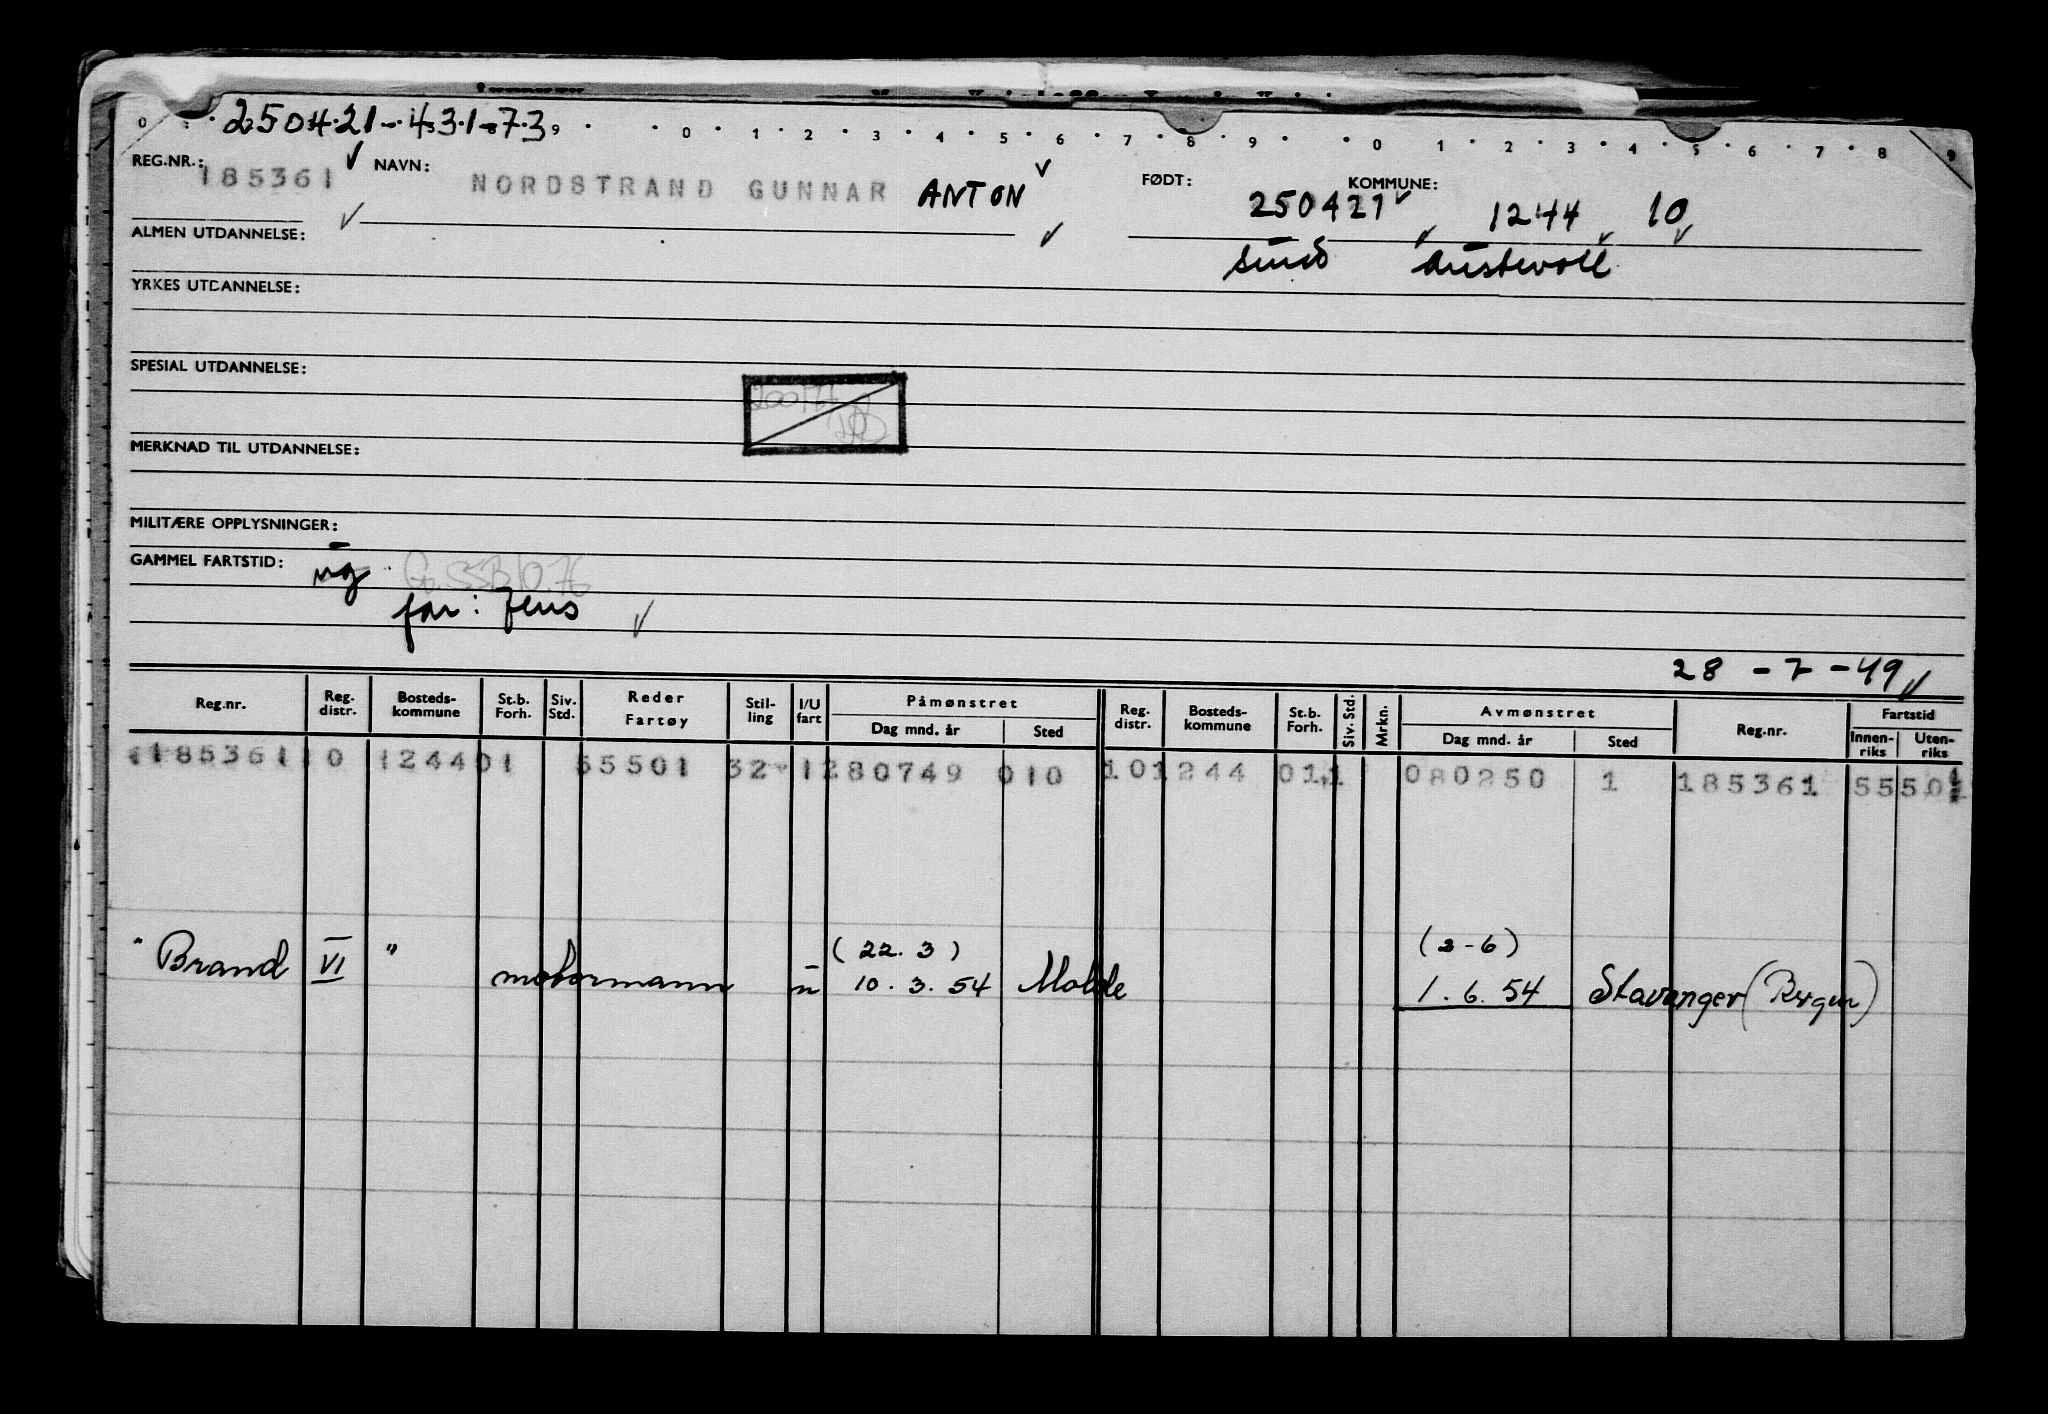 250421-43173
0 1 2 3 4 5 6 7 8 9 0 1 2 3 4 5 6 7 8 9
REG.NR.: 185361 NAVN: NORDSTRAND GUNNAR ANTON FØDT: 250421 KOMMUNE: 1244 10
ALMEN UTDANNELSE:
sund Austevoll
YRKES UTDANNELSE:
SPESIAL UTDANNELSE:
MERKNAD TIL UTDANNELSE:
MILITÆRE OPPLYSNINGER:
GAMMEL FARTSTID: ug
far: Jens
28-7-49
Reg.nr. Reg. distr. Bosteds-kommune St.b. Forh. Siv. Std. Reder Fartøy Stil-ling I/U fart Påmønstret Dag mnd. år Sted Reg. distr. Bosteds-kommune St.b. Forh. Siv. Std. Mrkn. Avmønstret Dag mnd. år Sted Reg.nr. Fartstid Innen-riks Uten-riks
185361 10 1244 01 55501 32 1 280749 010 10 1244 01 1 080250 1 185361 55501
(22.3) (2-6)
" Brand VI " motormann u 10.3.54 Molde 1.6.54 Stavanger